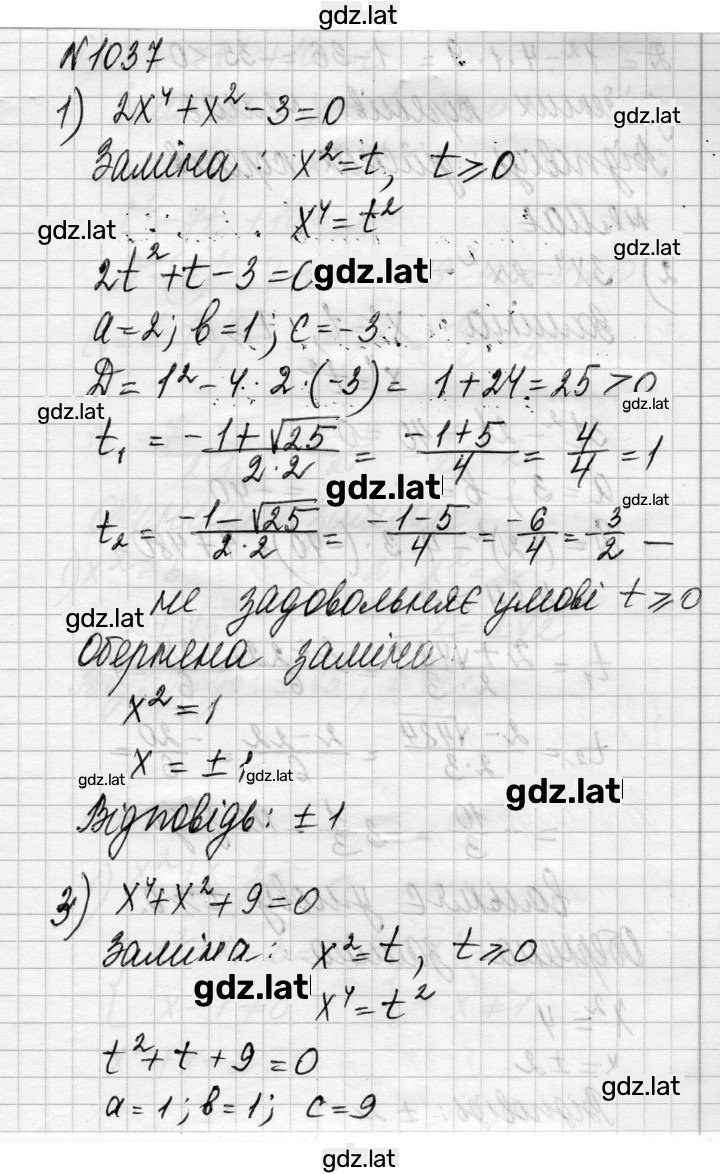 gdz.lat
№1037
1) 2x⁴+x²-3=0
gdz.lat
Заміна: x²=t, t≥0
gdz.lat x⁴=t²
gdz.lat
2t²+t-3=0
gdz.lat
a=2; b=1; c=-3
D=1²-4·2·(-3)=1+24=25>0
gdz.lat
gdz.lat
t₁ = (-1+√25)/(2·2) = (-1+5)/4 = 4/4 = 1
gdz.lat
gdz.lat
t₂ = (-1-√25)/(2·2) = (-1-5)/4 = -6/4 = -3/2 —
не задовольняє умові t≥0
gdz.lat
Обернена заміна
x²=1
x = ±1
gdz.lat gdz.lat
gdz.lat
Відповідь: ±1
3) x⁴+x²+9=0
Заміна: x²=t, t≥0
gdz.lat x⁴=t²
t²+t+9=0
gdz.lat
a=1; b=1; c=9
gdz.lat